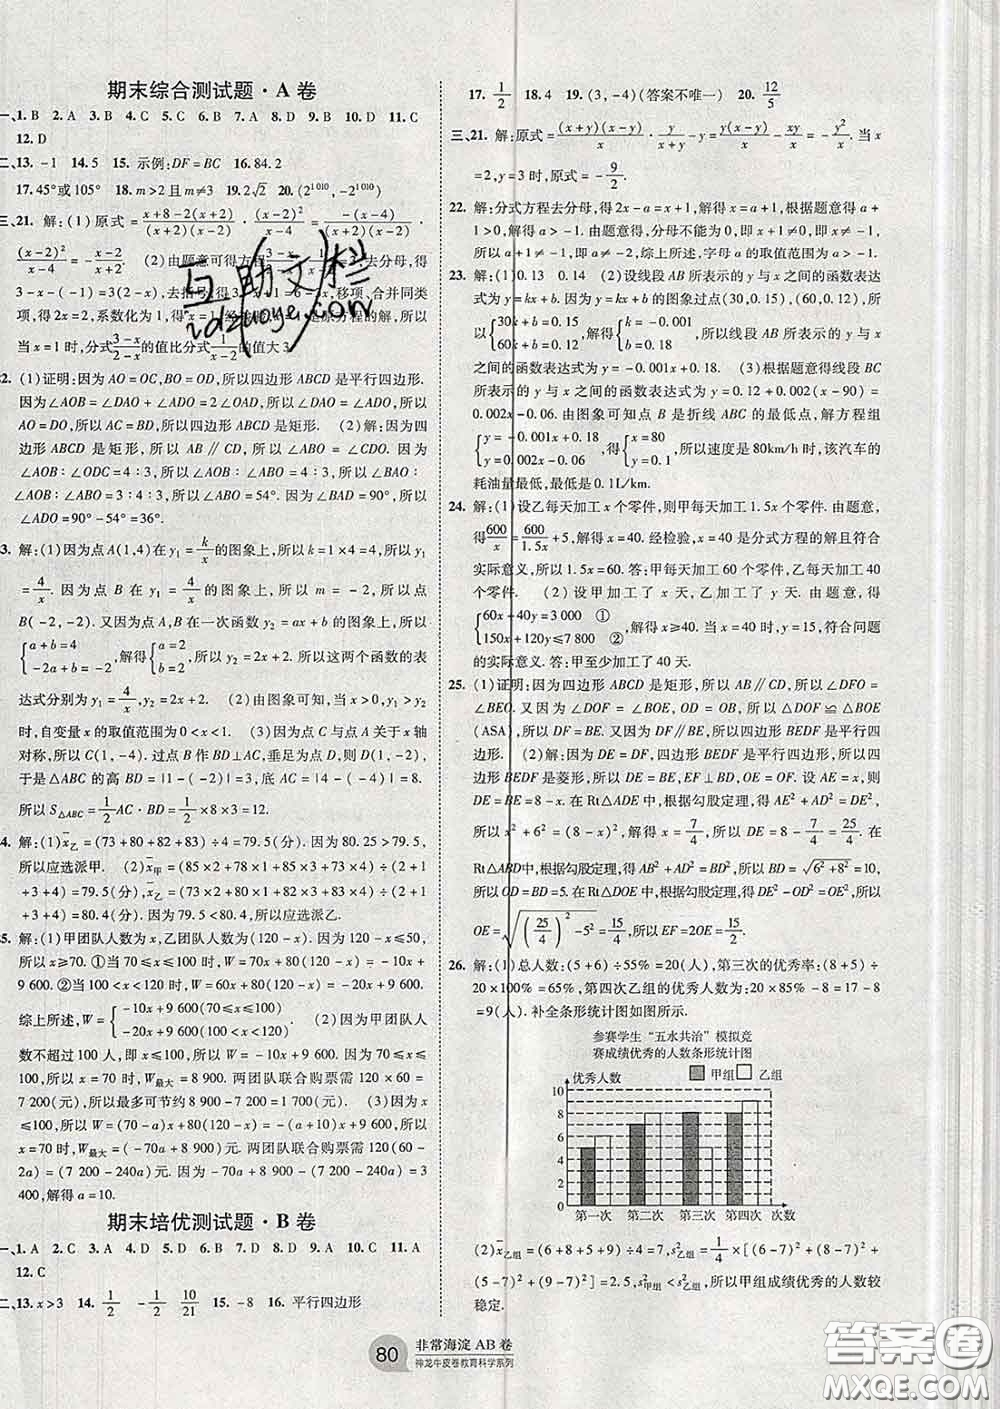 期末综合测试题·A卷
一、1. B 2. A 3. B 4. C 5. C 6. D 7. A 8. B 9. D 10. D 11. C
12. D
二、13. -1 14. 5 15. 示例:DF=BC 16. 84.2
17. 45°或105° 18. m>2且m≠3 19. 2√2 20. (2^1010, -2^1010)
三、21. 解:(1)原式=(x+8-2(x+2))/((x+2)(x-2))·(x-2)²/(x-4)=-(x-4)/((x+2)(x-2))·
(x-2)²/(x-4)=-(x-2)/(x+2). (2)由题意可得方程(3-x)/(2-x) 去分母,得
3-x-(x-2)=3,去括号,得3 移项、合并同类
项,得2x=2,系数化为1,得x=1. 是原方程的解,所
以当x=1时,分式(3-x)/(2-x)的值比分式1/(x-2)的值大3.
2. (1)证明:因为AO=OC,BO=OD,所以四边形ABCD是平行四边形.
因为∠AOB=∠DAO+∠ADO=2∠OAD,所以∠DAO=∠ADO,所以
AO=DO,所以AC=BD,所以四边形ABCD是矩形. (2)解:因为四
边形ABCD是矩形,所以AB∥CD,所以∠ABO=∠CDO.因为
∠AOB:∠ODC=4:3,所以∠AOB:∠ABO=4:3,所以∠BAO:
∠AOB:∠ABO=3:4:3,所以∠ABO=54°.因为∠BAD=90°,所以
∠ADO=90°-54°=36°.
3. 解:(1)因为点A(1,4)在y₁=k/x的图象上,所以k=1×4=4,所以y₁
=4/x.因为点B在y₁=4/x的图象上,所以m=-2,所以点
B(-2,-2).又因为点A、B在一次函数y₂=ax+b的图象上,所以
{a+b=4 -2a+b=-2,解得{a=2 b=2,所以y₂=2x+2.所以这两个函数的表
达式分别为y₁=4/x,y₂=2x+2. (2)由图象可知,当x>0,y₁>y₂
时,自变量x的取值范围为0<x<1. (3)因为点C与点A关于x轴
对称,所以C(1,-4).过点B作BD⊥AC,垂足为点D,则D(1,-2).
于是△ABC的高BD=|1-(-2)|=3,底AC=|4-(-4)|=8.
所以S△ABC=1/2 AC·BD=1/2×8×3=12.
4. 解:(1)x̄乙=(73+80+82+83)÷4=79.5(分).因为80.25>79.5,
所以应选派甲. (2)x̄甲=(85×2+78×1+85×3+73×4)÷(2+1
+3+4)=79.5(分),x̄乙=(73×2+80×1+82×3+83×4)÷(2+
1+3+4)=80.4(分).因为79.5<80.4,所以应选派乙.
5. 解:(1)甲团队人数为x,乙团队人数为(120-x).因为120-x≤50,
所以x≥70. ①当70≤x≤100时,W=70x+80(120-x)=-10x+
9 600. ②当100<x<120时,W=60x+80(120-x)=-20x+9 600.
综上所述,W={-10x+9 600(70≤x≤100) -20x+9 600(100<x<120). (2)因为甲团队人
数不超过100人,即x≤100,所以W=-10x+9 600.因为70≤x≤
100,所以x=70时,W最大=8 900.两团队联合购票需120×60=
7 200(元),所以最多可节约8 900-7 200=1 700(元). (3)因为x
≤100,所以W=(70-a)x+80(120-x)=-(a+10)x+9 600,所以
x=70时,W最大=-70a+8 900(元),两团队联合购票需120(60-
2a)=(7 200-240a)(元).因为-70a+8 900-(7 200-240a)=3
400,解得a=10.
期末培优测试题·B卷
一、1. A 2. C 3. A 4. D 5. A 6. D 7. B 8. D 9. B 10. C 11. A
12. C
二、13. x>3 14. 1/2 -1/2 10/21 15. -8 16. 平行四边形
17. 1/2 18. 4 19. (3,-4)(答案不唯一) 20. 12/5
三、21. 解:原式=(x+y)(x-y)/x·x/(x+y)-xy/(x-y)-xy/x=-y²/x.当x
=2,y=3时,原式=-9/2.
22. 解:分式方程去分母,得2x-a=x+1,解得x=a+1,根据题意得a+
1>0,解得a>-1.由题意得,分母不能为0,即x+1≠0,即x≠-1,所
以x=a+1≠-1,即a≠-2,综上所述,字母a的取值范围为a>-1.
23. 解:(1)0.13 0.14 (2)设线段AB所表示的y与x之间的函数表达
式为y=kx+b.因为y=kx+b的图象过点(30,0.15),(60,0.12),所
以{30k+b=0.15 60k+b=0.12,解得{k=-0.001 b=0.18.所以线段AB所表示的y与x
之间的函数表达式为y=-0.001x+0.18. (3)根据题意得线段BC
所表示的y与x之间的函数表达式为y=0.12+0.002(x-90)=
0.002x-0.06.由图象可知点B是折线ABC的最低点,解方程组
{y=-0.001x+0.18 y=0.002x-0.06,得{x=80 y=0.1,所以速度是80km/h时,该汽车的
耗油量最低,最低是0.1L/km.
24. 解:(1)设乙每天加工x个零件,则甲每天加工1.5x个零件.由题意,
得600/x=600/1.5x+5,解得x=40.经检验,x=40是分式方程的解且符合
实际意义,所以1.5x=60.答:甲每天加工60个零件,乙每天加工40
个零件. (2)设甲加工了x天,乙加工了y天.由题意,得
{60x+40y=3 000 ① 150x+120y≤7 800 ②,解得x≥40.当x=40时,y=15,符合问题
的实际意义.答:甲至少加工了40天.
25. (1)证明:因为四边形ABCD是矩形,所以AB∥CD,所以∠DFO=
∠BEO.又因为∠DOF=∠BOE,OD=OB,所以△DOF≌△BOE
(ASA),所以DF=BE.又因为DF∥BE,所以四边形BEDF是平行四
边形. (2)解:因为DE=DF,四边形BEDF是平行四边形,所以四
边形BEDF是菱形,所以DE=BE,EF⊥BD,OE=OF.设AE=x,则
DE=BE=8-x.在Rt△ADE中,根据勾股定理,得AE²+AD²=DE²,
所以x²+6²=(8-x)²,解得x=7/4,所以DE=8-7/4=25/4.在
Rt△ABD中,根据勾股定理,得AB²+AD²=BD²,所以BD=√(6²+8²)=10,
所以OD=1/2BD=5.在Rt△DOE中,根据勾股定理,得DE²-OD²=OE²,
OE=√((25/4)²-5²)=15/4,所以EF=2OE=15/2.
26. 解:(1)总人数:(5+6)÷55%=20(人),第三次的优秀率:(8+5)÷
20×100%=65%,第四次乙组的优秀人数为:20×85%-8=17-8
=9(人).补全条形统计图如图所示.
参赛学生“五水共治”模拟竞
赛成绩优秀的人数条形统计图
优秀人数 甲组 乙组
10
8
6
4
2
0
第一次 第二次 第三次 第四次 次数
(2)x̄乙组=(6+8+5+9)÷4=7,s²乙组=1/4×[(6-7)²+(8-7)²+
(5-7)²+(9-7)²]=2.5,s²甲组<s²乙组,所以甲组成绩优秀的人数较
稳定.
80 非常海淀AB卷
神龙牛皮卷教育科学系列
答案圈
MXQE.COM